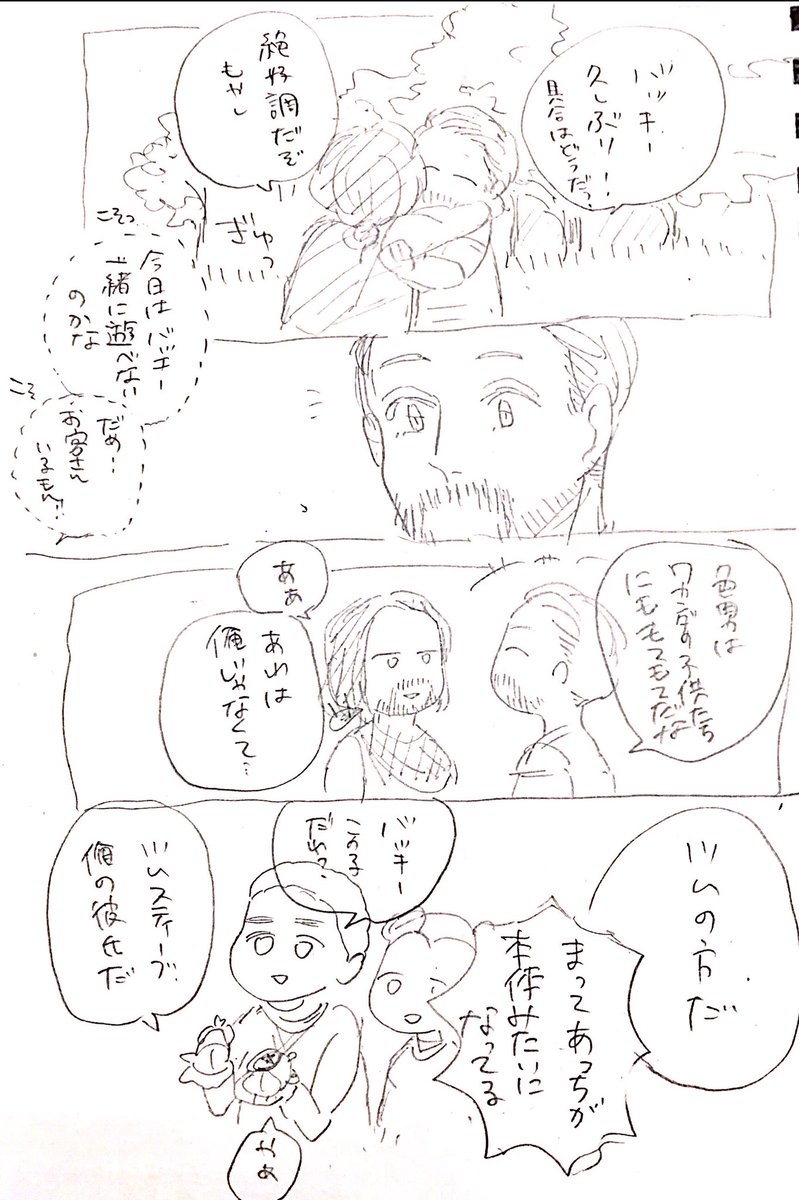 バッキー
久しぶり!!
具合はどうだ?
絶好調だぞ
もやし
ぎゅっ
こそっ
今日はバッキー
一緒に遊べない
のかな
こそ
だめ…
お客さん
いるもん!!
色男は
ワカンダの子供たち
にもモテモテだな
ああ
あれは
俺じゃなくて…
ツムの方だ
まってあっちが
本体みたいに
なってる
バッキー
この子
だれ?
ツムスティーブ
俺の彼氏だ